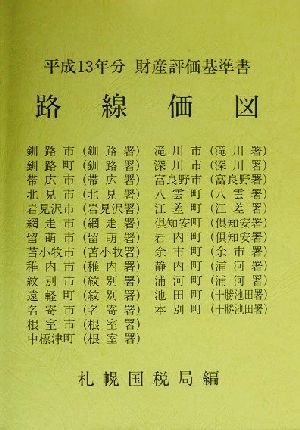 平成13年分 財産評価基準書
路線価図
釧路市(釧路署) 滝川市(滝川署)
釧路町(釧路署) 深川市(深川署)
帯広市(帯広署) 富良野市(富良野署)
北見市(北見署) 八雲町(八雲署)
岩見沢市(岩見沢署) 江差町(江差署)
網走市(網走署) 倶知安町(倶知安署)
留萌市(留萌署) 岩内町(倶知安署)
苫小牧市(苫小牧署) 余市町(余市署)
稚内市(稚内署) 静内町(浦河署)
紋別市(紋別署) 浦河町(浦河署)
遠軽町(紋別署) 池田町(十勝池田署)
名寄市(名寄署) 本別町(十勝池田署)
根室市(根室署)
中標津町(根室署)
札幌国税局編